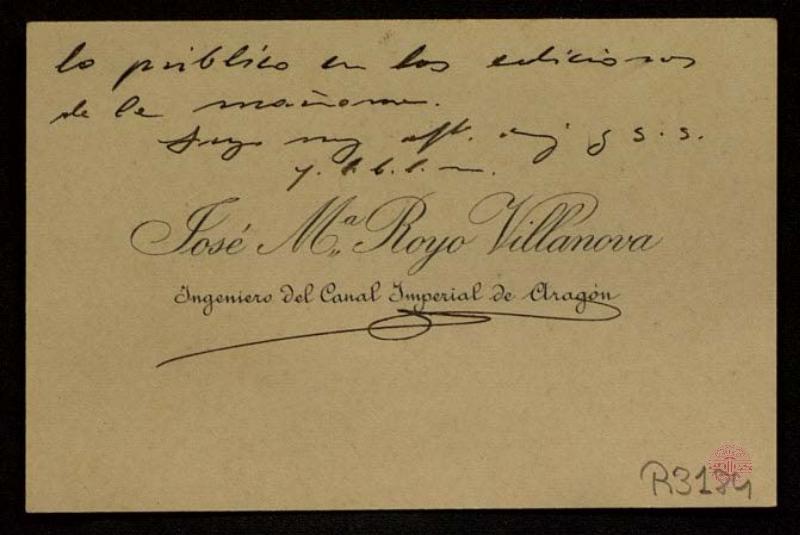 lo publico en las ediciones
de la mañana.
Soy muy aft. amj y s. s.
q. b. l. m.
José Mª Royo Villanova
Ingeniero del Canal Imperial de Aragón
R3184